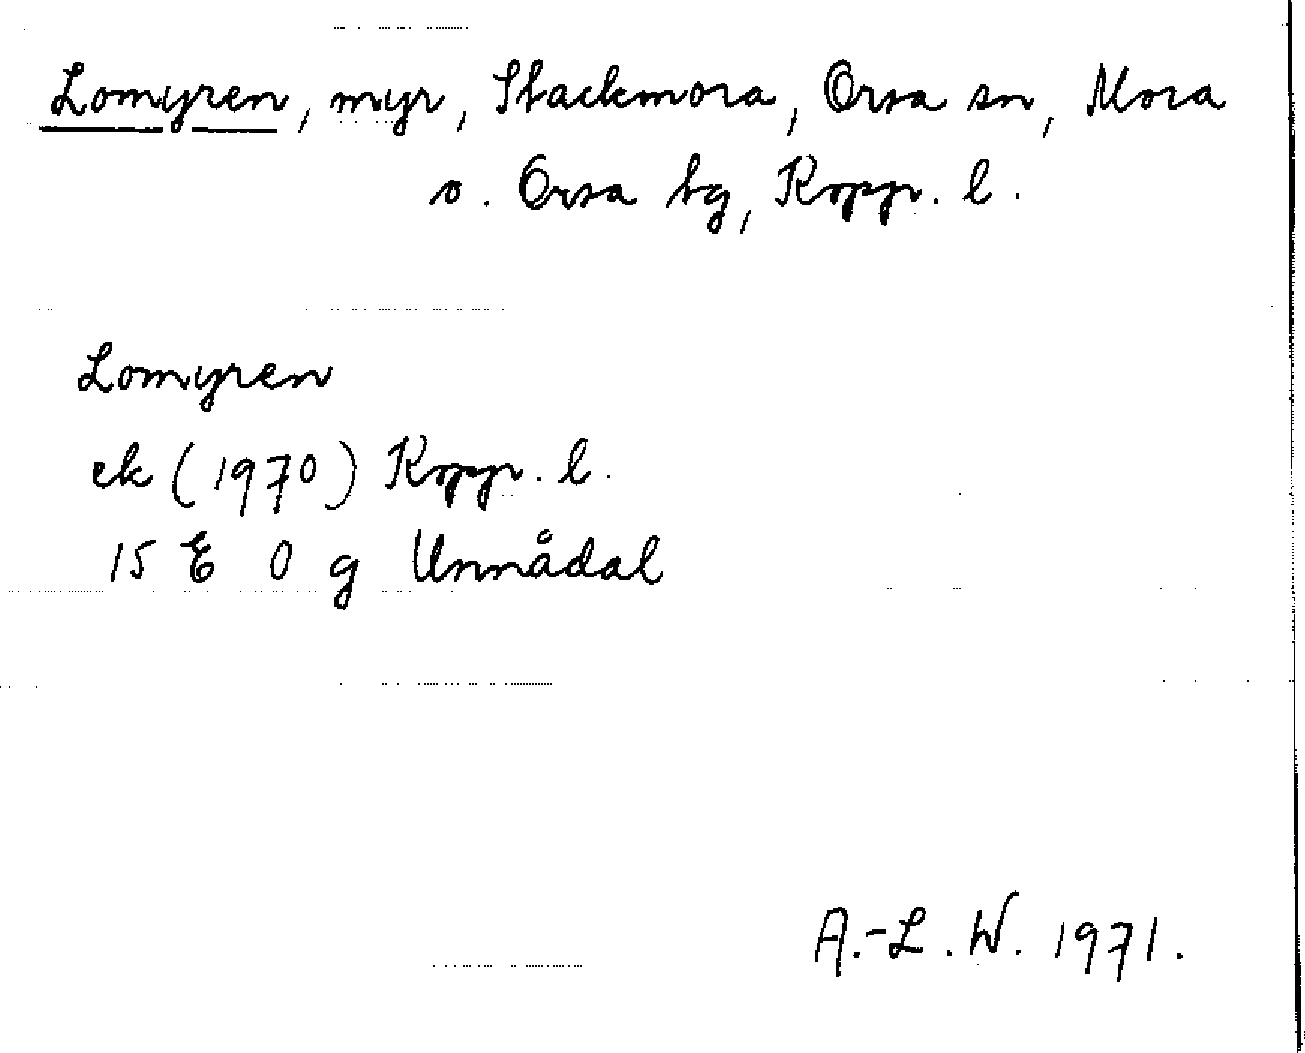 Lomyren, myr, Stackmora, Orsa sn, Mora
o. Orsa tg, Kopp. l.
Lomyren
ek (1970) Kopp. l.
15 E 0 g Unnådal
A.-L. W. 1971.